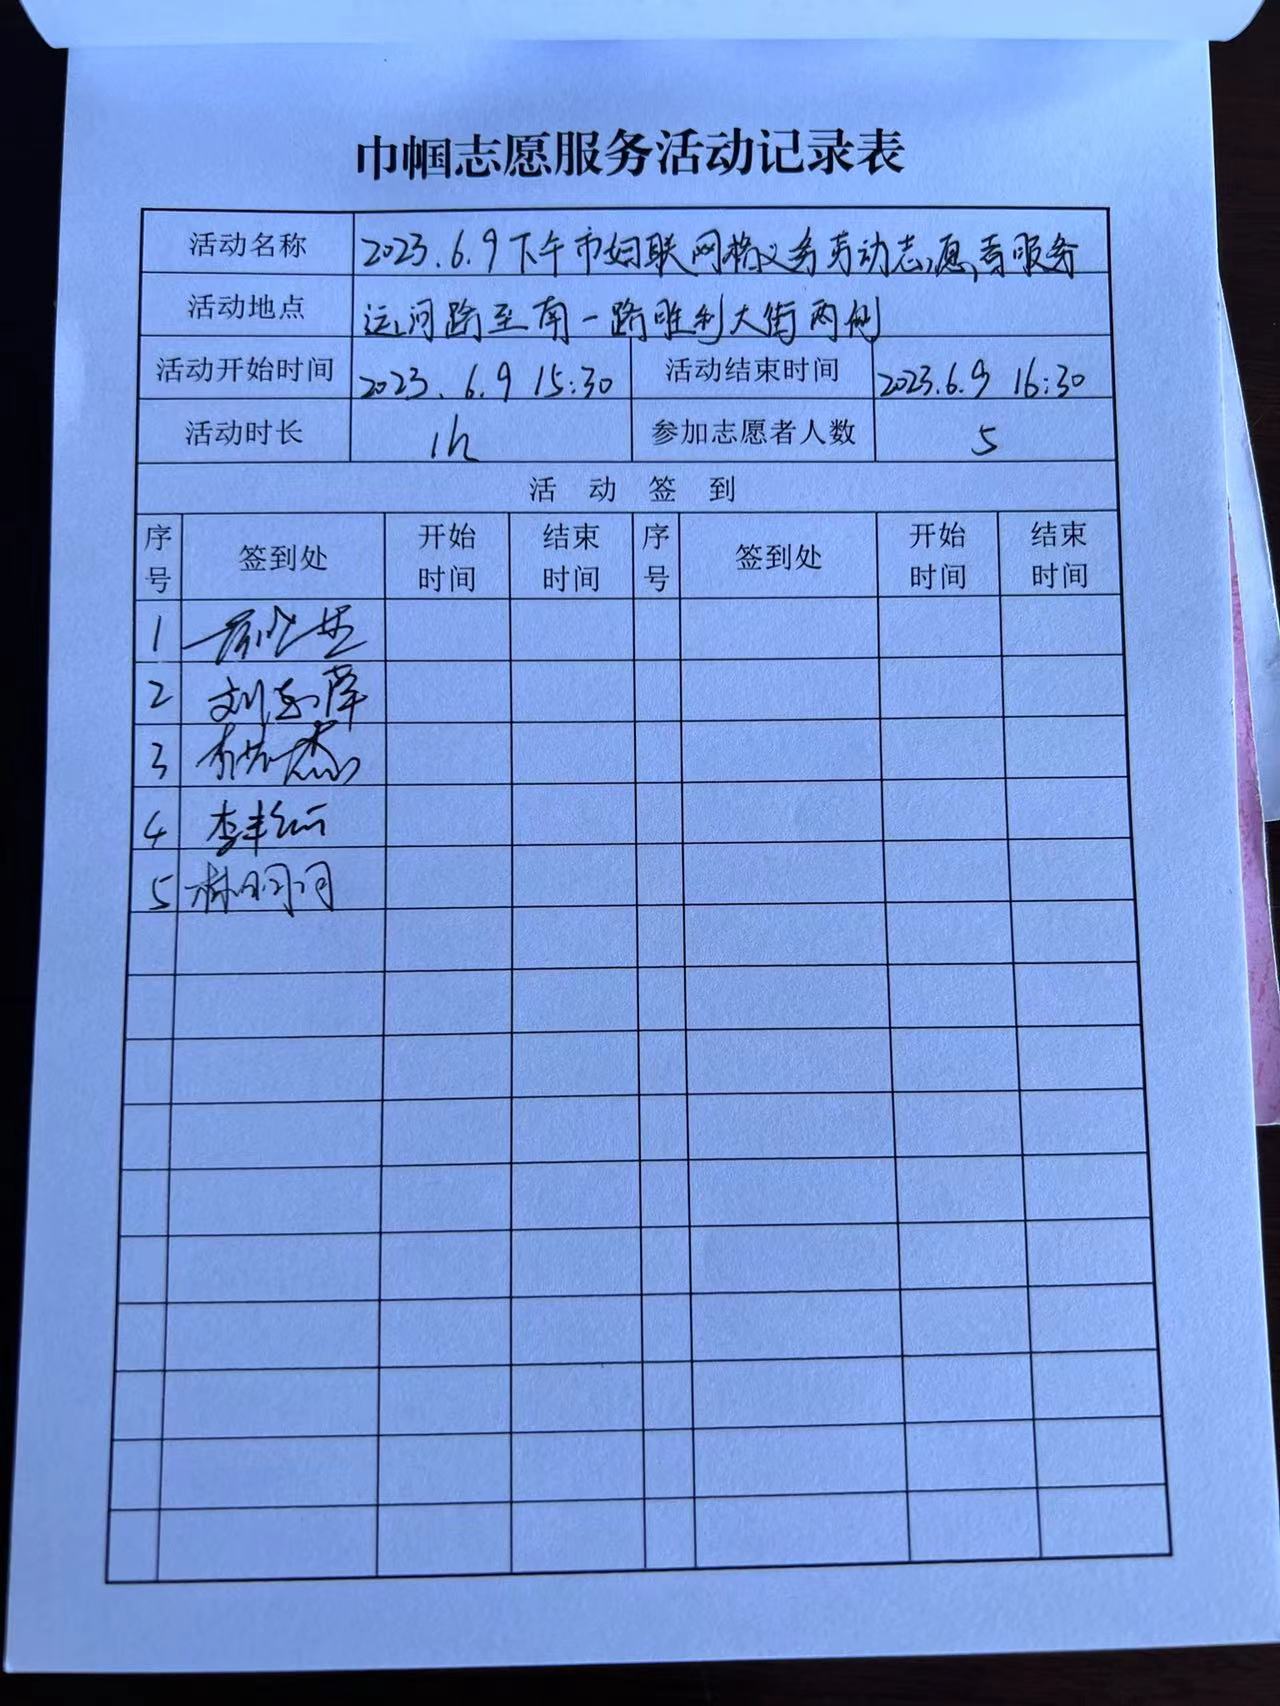 巾帼志愿服务活动记录表
活动名称 2023.6.9下午市妇联网格义务劳动志愿者服务
活动地点 运河路至南一路胜利大街两侧
活动开始时间 2023.6.9 15:30 活动结束时间 2023.6.9 16:30
活动时长 1h 参加志愿者人数 5
活动签到
序号 签到处 开始时间 结束时间 序号 签到处 开始时间 结束时间
1
2 刘志萍
3
4 李丰
5 林